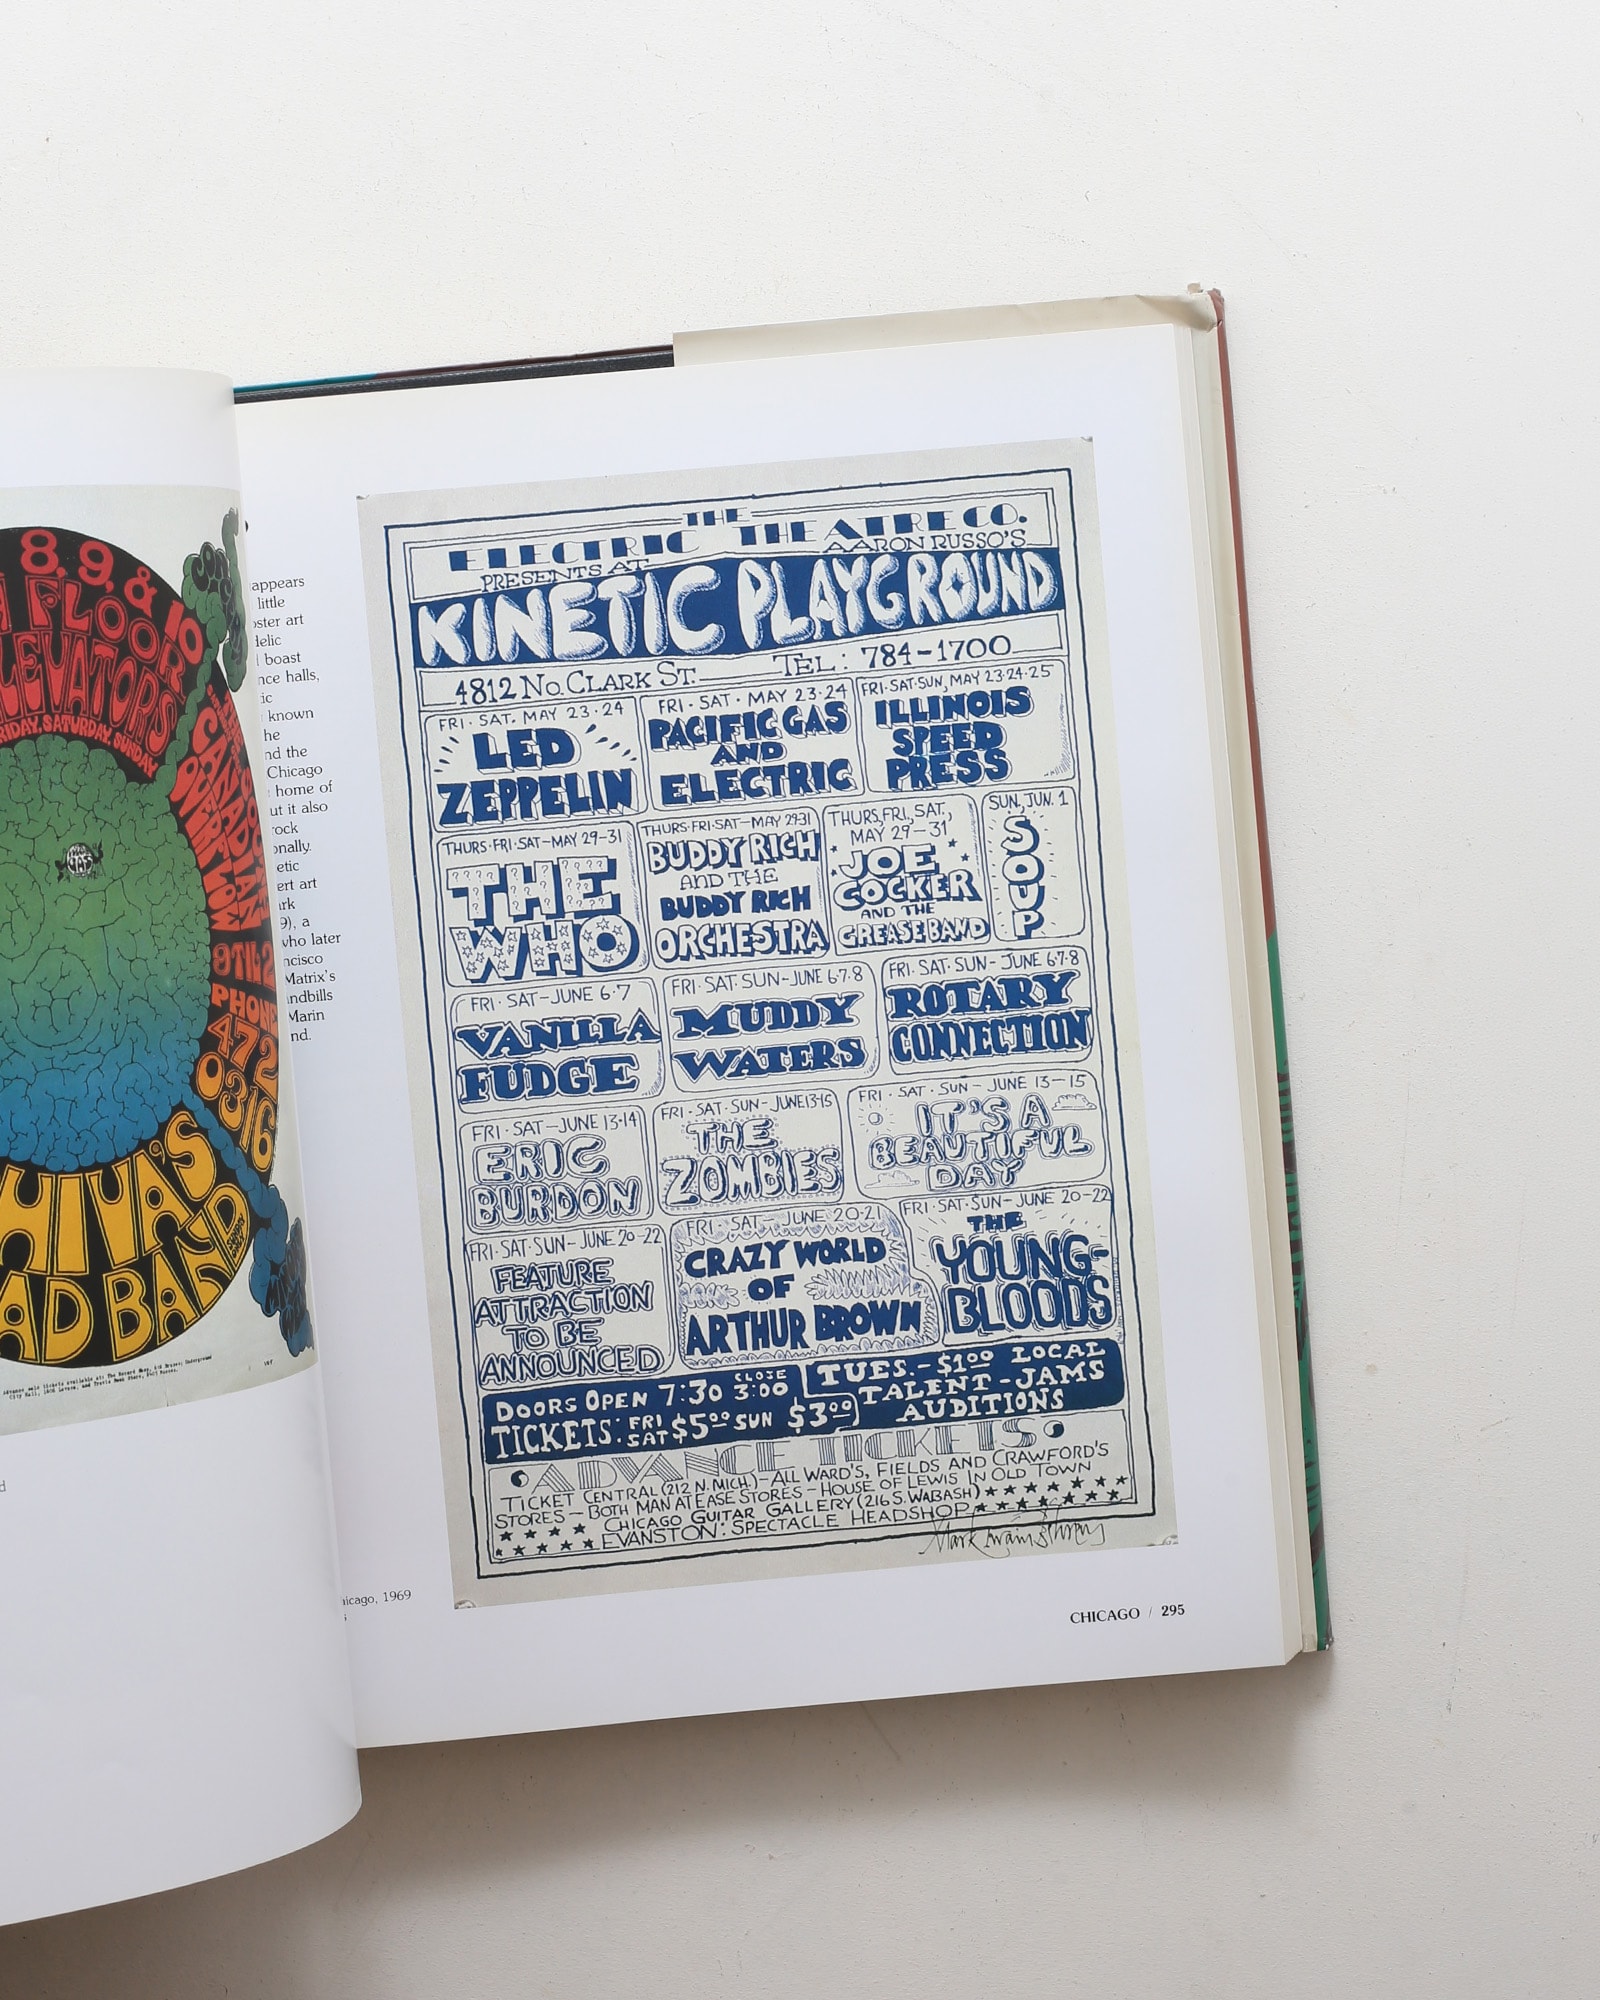 8, 9, & 10
FLOOR
ELEVATORS
FRIDAY, SATURDAY, SUNDAY
CANADIAN
OVERFLOW
9 TIL 2
PHONE
472
0316
SHIVA'S
HEAD BAND
appears
little
oster art
delic
boast
nce halls,
ic
known
he
nd the
Chicago
home of
ut it also
rock
onally.
etic
ert art
rk
9), a
who later
ncisco
Matrix's
andbills
Marin
nd.
THE
ELECTRIC THEATRE CO.
PRESENTS AT AARON RUSSO'S
KINETIC PLAYGROUND
4812 NO. CLARK ST. TEL: 784-1700
FRI. SAT. MAY 23.24
LED
ZEPPELIN
FRI. SAT. MAY 23.24
PACIFIC GAS
AND
ELECTRIC
FRI. SAT. SUN, MAY 23.24.25
ILLINOIS
SPEED
PRESS
THURS. FRI. SAT—MAY 29-31
THE
WHO
THURS. FRI. SAT—MAY 29-31
BUDDY RICH
AND THE
BUDDY RICH
ORCHESTRA
THURS, FRI, SAT,
MAY 29-31
JOE
COCKER
AND THE
GREASE BAND
SUN, JUN. 1
SOUP
FRI. SAT—JUNE 6.7
VANILLA
FUDGE
FRI. SAT. SUN—JUNE 6.7.8
MUDDY
WATERS
FRI. SAT. SUN—JUNE 6.7.8
ROTARY
CONNECTION
FRI. SAT—JUNE 13-14
ERIC
BURDON
FRI. SAT. SUN—JUNE 13-15
THE
ZOMBIES
FRI. SAT. SUN—JUNE 13-15
IT'S A
BEAUTIFUL
DAY
FRI. SAT. SUN—JUNE 20-22
FEATURE
ATTRACTION
TO BE
ANNOUNCED
FRI. SAT—JUNE 20-21
CRAZY WORLD
OF
ARTHUR BROWN
FRI. SAT. SUN—JUNE 20-22
THE
YOUNG-
BLOODS
DOORS OPEN 7:30 CLOSE 3:00
TICKETS: FRI SAT $5.00 SUN $3.00
TUES.—$1.00 LOCAL
TALENT—JAMS
AUDITIONS
ADVANCE TICKETS
TICKET CENTRAL (212 N. MICH.)—ALL WARD'S, FIELDS AND CRAWFORD'S
STORES—BOTH MAN AT EASE STORES—HOUSE OF LEWIS IN OLD TOWN
CHICAGO GUITAR GALLERY (216 S. WABASH)
EVANSTON: SPECTACLE HEADSHOP
hicago, 1969
CHICAGO / 295